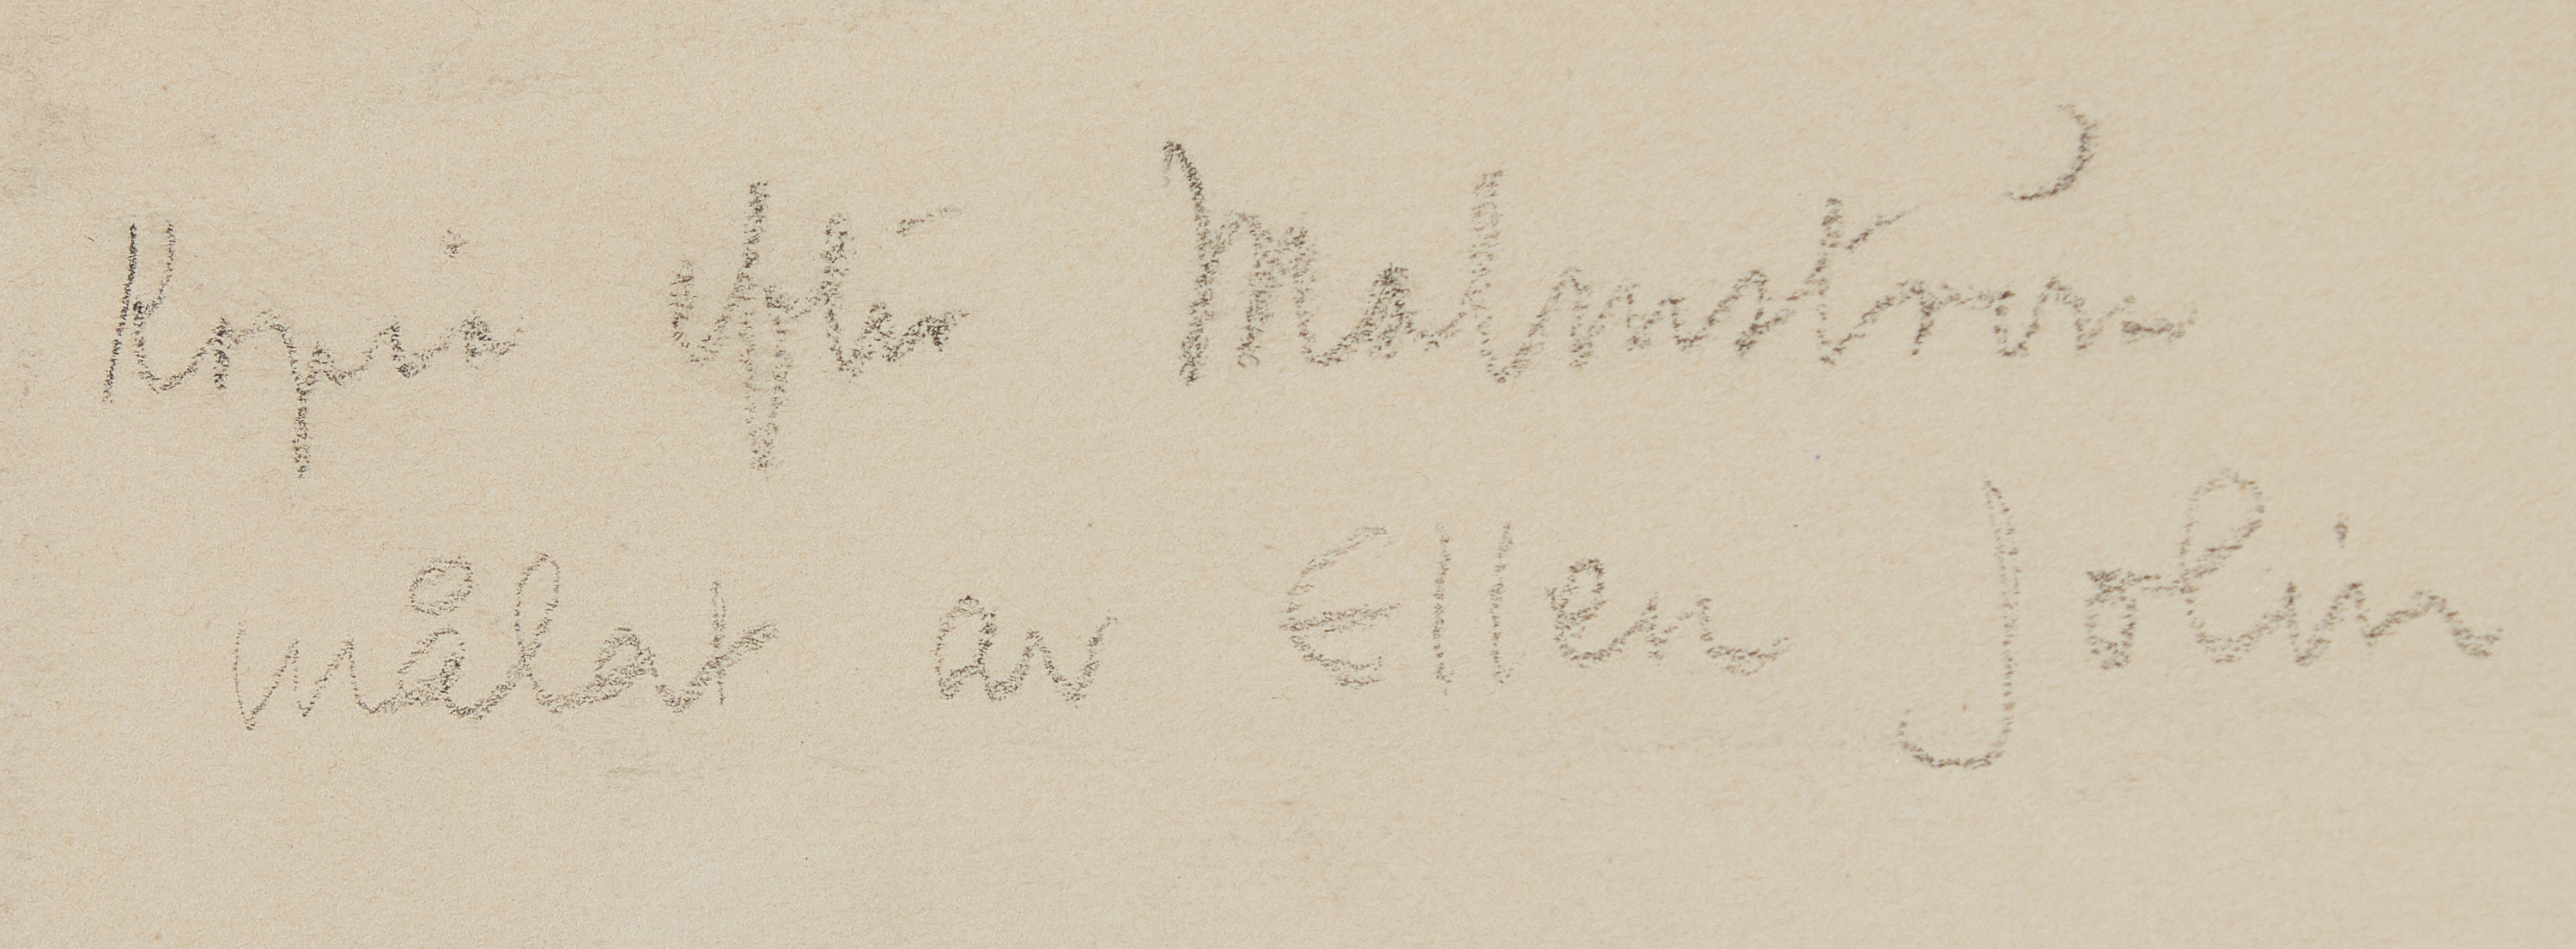 Kopia efter Malmström
målat av Ellen Jolin